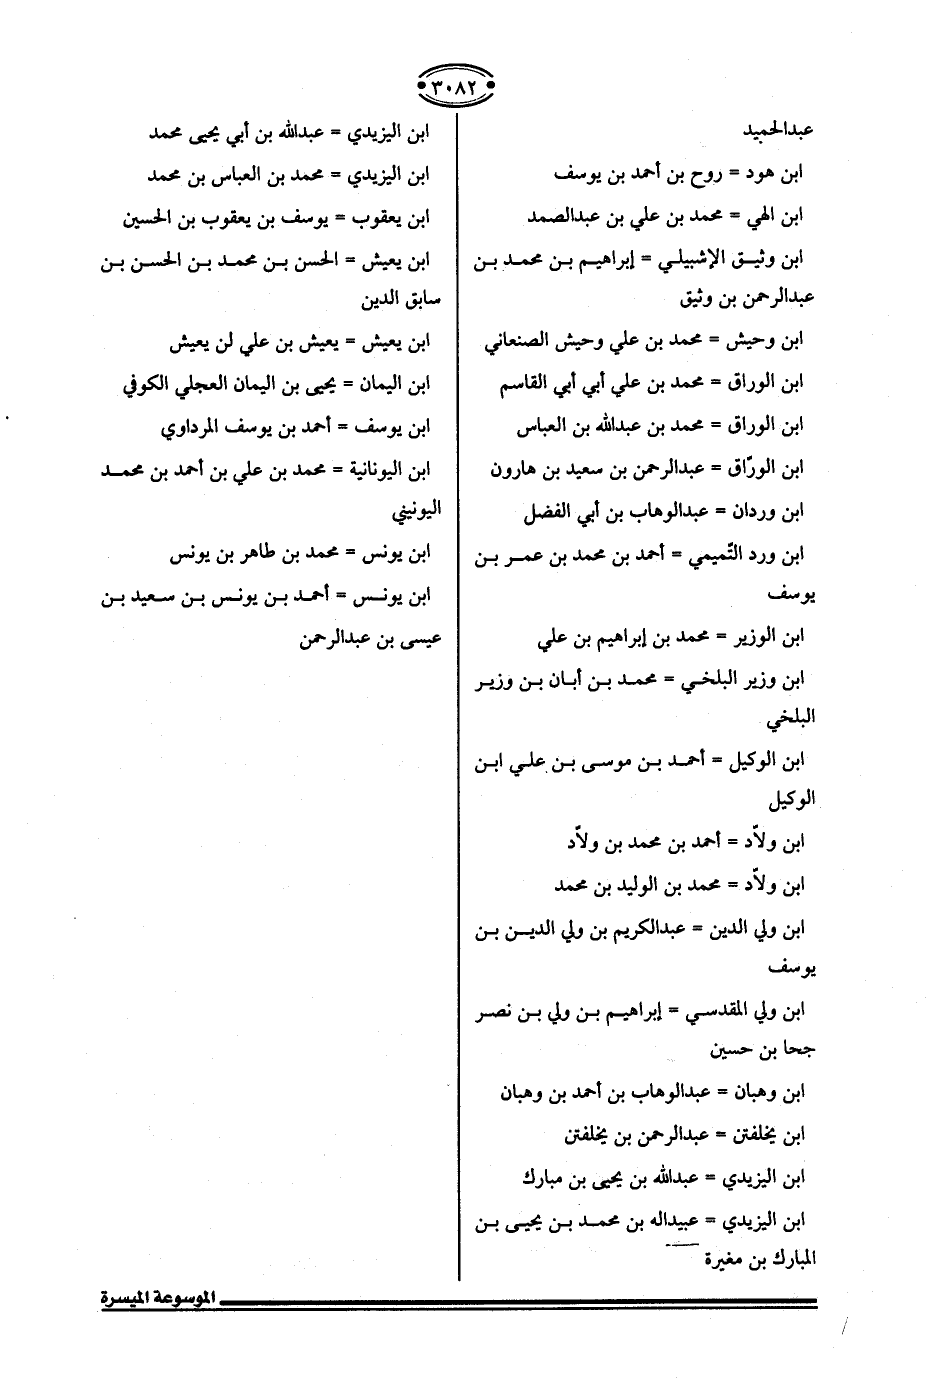 ٣٠٨٢
عبدالحميد
ابن هود = روح بن أحمد بن يوسف
ابن الهي = محمد بن علي بن عبدالصمد
ابن وثيق الإشبيلي = إبراهيم بن محمد بن
عبدالرحمن بن وثيق
ابن وحيش = محمد بن علي وحيش الصنعاني
ابن الوراق = محمد بن علي أبي أبي القاسم
ابن الوراق = محمد بن عبدالله بن العباس
ابن الورّاق = عبدالرحمن بن سعيد بن هارون
ابن وردان = عبدالوهاب بن أبي الفضل
ابن ورد التّميمي = أحمد بن محمد بن عمر بن
يوسف
ابن الوزير = محمد بن إبراهيم بن علي
ابن وزير البلخي = محمد بن أبان بن وزير
البلخي
ابن الوكيل = أحمد بن موسى بن علي ابن
الوكيل
ابن ولاّد = أحمد بن محمد بن ولاّد
ابن ولاّد = محمد بن الوليد بن محمد
ابن ولي الدين = عبدالكريم بن ولي الدين بن
يوسف
ابن ولي المقدسي = إبراهيم بن ولي بن نصر
جحا بن حسين
ابن وهبان = عبدالوهاب بن أحمد بن وهبان
ابن يخلفتن = عبدالرحمن بن يخلفتن
ابن اليزيدي = عبدالله بن يحيى بن مبارك
ابن اليزيدي = عبيداله بن محمد بن يحيى بن
المبارك بن مغيرة
ابن اليزيدي = عبدالله بن أبي يحيى محمد
ابن اليزيدي = محمد بن العباس بن محمد
ابن يعقوب = يوسف بن يعقوب بن الحسين
ابن يعيش = الحسن بن محمد بن الحسن بن
سابق الدين
ابن يعيش = يعيش بن علي لن يعيش
ابن اليمان = يحيى بن اليمان العجلي الكوفي
ابن يوسف = أحمد بن يوسف المرداوي
ابن اليونانية = محمد بن علي بن أحمد بن محمد
اليونيني
ابن يونس = محمد بن طاهر بن يونس
ابن يونس = أحمد بن يونس بن سعيد بن
عيسى بن عبدالرحمن
الموسوعة الميسرة